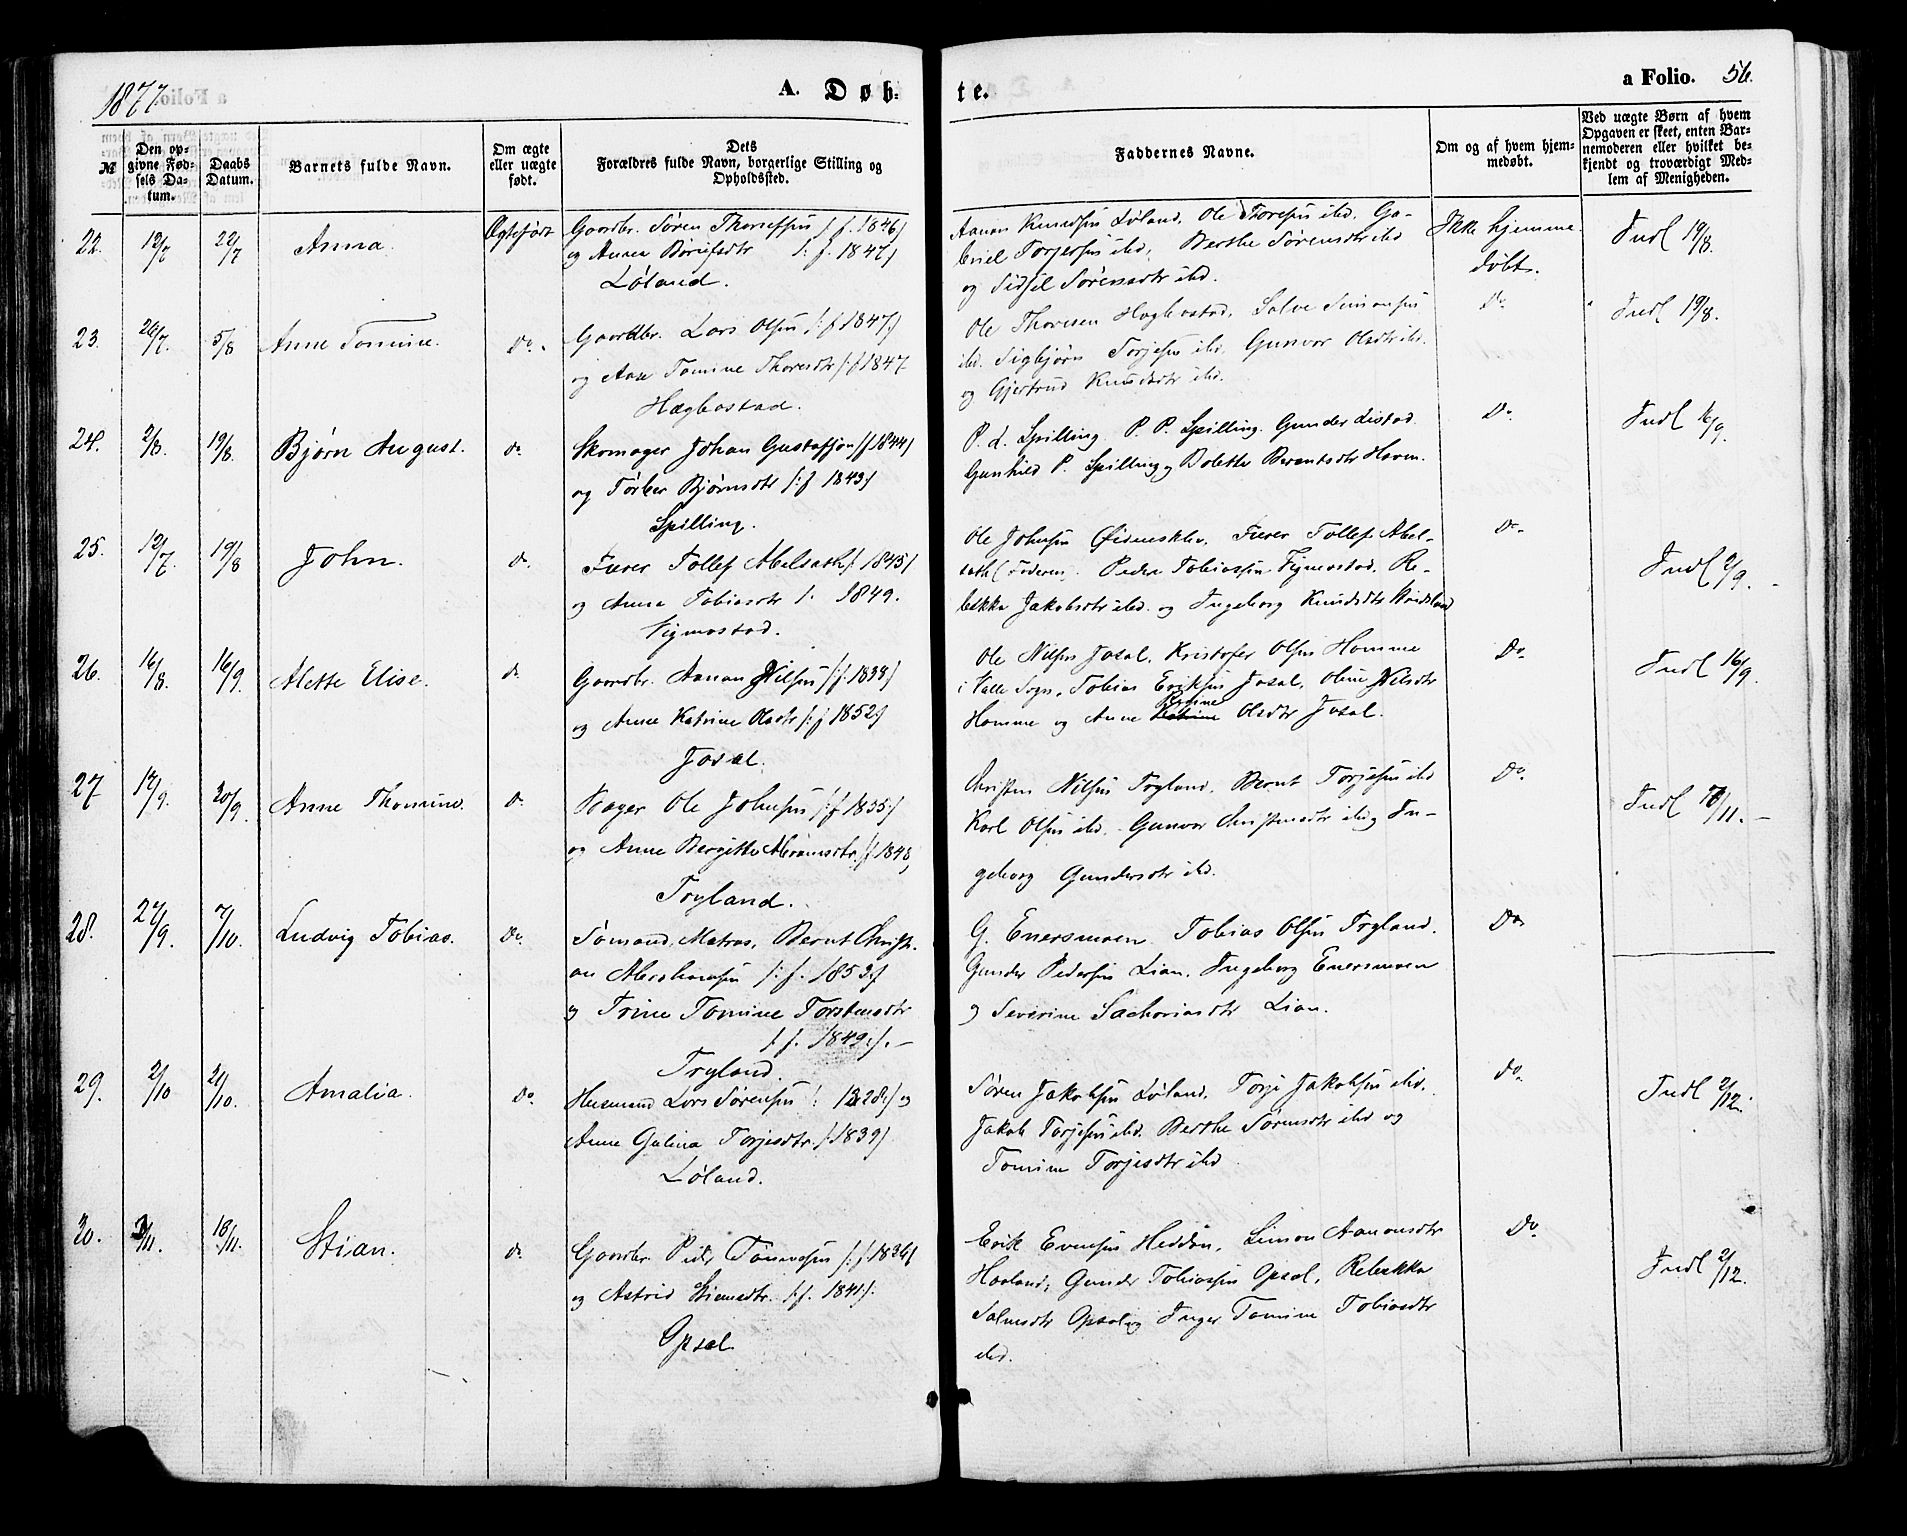 1877.
A. Døb-
te.
a Folio. 56.
№
Den op-
givne Fød-
sels Da-
tum.
Daabs
Datum.
Barnets fulde Navn.
Om ægte
eller uægte
født.
Dets
Forældres fulde Navn, borgerlige Stilling og
Opholdssted.
Faddernes Navne.
Om og af hvem hjem-
medøbt.
Ved uægte Børn af hvem
Opgaven er skeet, enten Bar-
nemoderen eller hvilket be-
kjendt og troværdigt Med-
lem af Menigheden.
22. 12/7 22/7 Anna. Ægtefødt Gaardbr. Søren /: f. 1846/
og Anna /: f. 1847/
Løland.
Aanon Knudsen Løland, Ole Toresen ibd. Ga-
briel Torjesen ibd, Berthe Sørensdtr ibd
og Sidsel Sørensdtr ibd.
Ikke hjemme-
døbt.
Indl 19/8.
23. 26/7. 5/8 Anne Tomine. Do. Gaardbr. Lars Olsen /: f 1847./
og Ane Tomine Thoresdtr /: f 1847
Hægbostad.
Ole Thoresen Hægbostad, Salve Simonsen
ibd. Sigbjørn Torjesen ibd, Gunvor Olsdtr ibd.
og Gjertrud Knudsdtr ibd.
Do
Indl 19/8.
24. 2/8. 19/8. Bjørn August. Do Skomager Johan Gustafson /: f 1844/
og Bjørnsdtr /: f 1843/
Spilling.
P. L. Spilling. P. P. Spilling. Gunder Listad
Gunhild P. Spilling og Bolette Berentsdtr Haven.
Do
Indl 16/9.
25. 12/7. 19/8 John. Do. Tollef 1845/
og Anna Tobiasdtr /: 1849.
Vigmostad.
Ole Johnsen Tollef Abel-
Peder Tobiassen Vigmostad, Re-
bekka Jakobsdtr ibd. og Ingeborg Knudsdtr
Do
Indl 2/9.
26. 16/8. 16/9. Alette Elise. Do Gaardbr. Aanon Nilsen /: f. 1838/
og Anne Katrine Olsdtr /: f 1852./
Josal.
Ole Nilsen Josal, Kristofer Olsen Homme
i Valle Sogn, Tobias Eriksen Josal, Oline Nilsdtr
Homme og Anne Olsdtr Josal.
Do
Indl 16/9.
27 14/9. 30/9. Anne Thomine. Do Bager Ole Johnsen /: f 1835:/
og Anne Bergitte Abramsdtr. /: f 1848/
Trygland.
Christen Nilsen Trygland, Bernt Torjesen ibd
Karl Olsen ibd. Gunvor ibd og In-
geborg Gundersdtr ibd.
Do
Indl 18/11. –
28. 27/9. 7/10. Ludvig Tobias. Do. Sømand, Matros, Bernt Christi-
an Abrahamsen /: f. 1853:/
og Trine Tomine Torstensdtr
/: f. 1849:/. –
Trygland.
G. Enersmoen Tobias Olsen Trygland.
Gunder Pedersen Lian. Ingeborg Enersmoen
og Severine Sachariasdtr Lian.
Do
29. 2/10 21/10. Amalia. Do. Husmand Lars Sørensen /: 1828:/ og
Anne Galina Torjesdtr. /: 1839/
Løland.
Søren Jakobsen Løland, Torje Jakobsen ibd.
Jakob Torjesen ibd. Berthe Sørensdtr ibd og
Tomine Torjesdtr ibd.
Do.
Indl 2/12.
30. 3/11. 18/11. Stian. Do Gaardbr. Peder Tønnesen /: f 1836/
og Astrid Stiansdtr. /: f. 1841:/.
Opsal.
Erik Evensen Heddan, Simon Aanonsdtr
Haaland, Gunder Tobiassen Opsal, Rebekka
Salvesdtr Opsal og Inger Tomine Tobiasdtr
ibd.
Do
Indl 2/12.